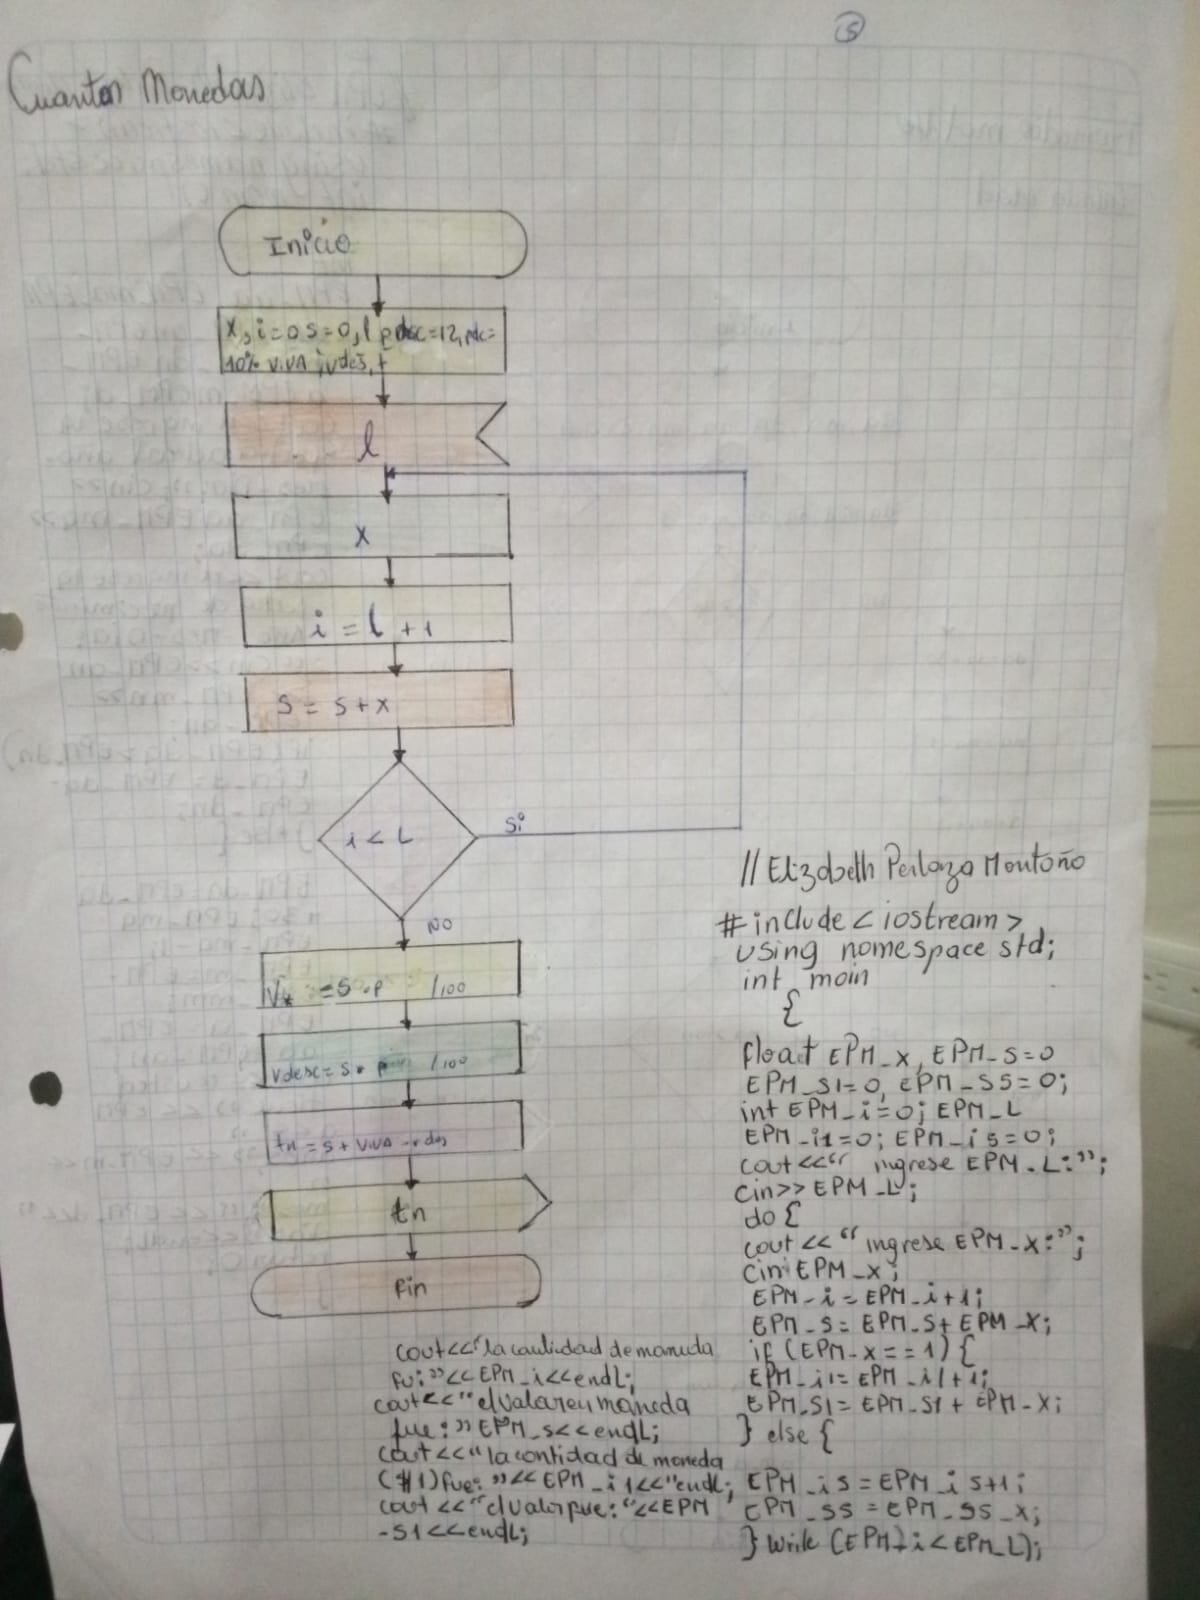 5
Cuantas Monedas
Inicio
x, i=0 s=0, l pdesc=12, pdc=
10% VIVA, vdes, t
l
x
i = l + 1
s = s + x
i < L
Si
NO
= s * p /100
vdesc = s * p /100
tn = s + VIVA - vdes
tn
Fin
// Elizabeth Perlaza Montoño
#include < iostream >
using nomespace std;
int moin
{
float EPM_x, EPM_S=0
EPM_S1=0, EPM_S5=0;
int EPM_i=0; EPM_L
EPM_i1=0; EPM_i5=0;
cout <<" ingrese EPM_L:";
cin>> EPM_L;
do {
cout << " ingrese EPM_x:";
cin EPM_x;
EPM_i = EPM_i+1;
EPM_S = EPM_S + EPM_X;
if (EPM_x == 1) {
EPM_i1= EPM_i1+1;
EPM_S1 = EPM_S1 + EPM_X;
} else {
EPM_i5 = EPM_i5+1;
EPM_S5 = EPM_S5_X;
} Write (EPM_i < EPM_L);
cout<<"la cantidad de moneda
fu:"<< EPM_i<<endL;
cout<<"el valor eu moneda
fue:" EPM_s<<endL;
cout<<"la contidad de moneda
(#1) fue:"<< EPM_i1<<"endL;
cout <<"el valor fue:"<<EPM
_S1<<endL;